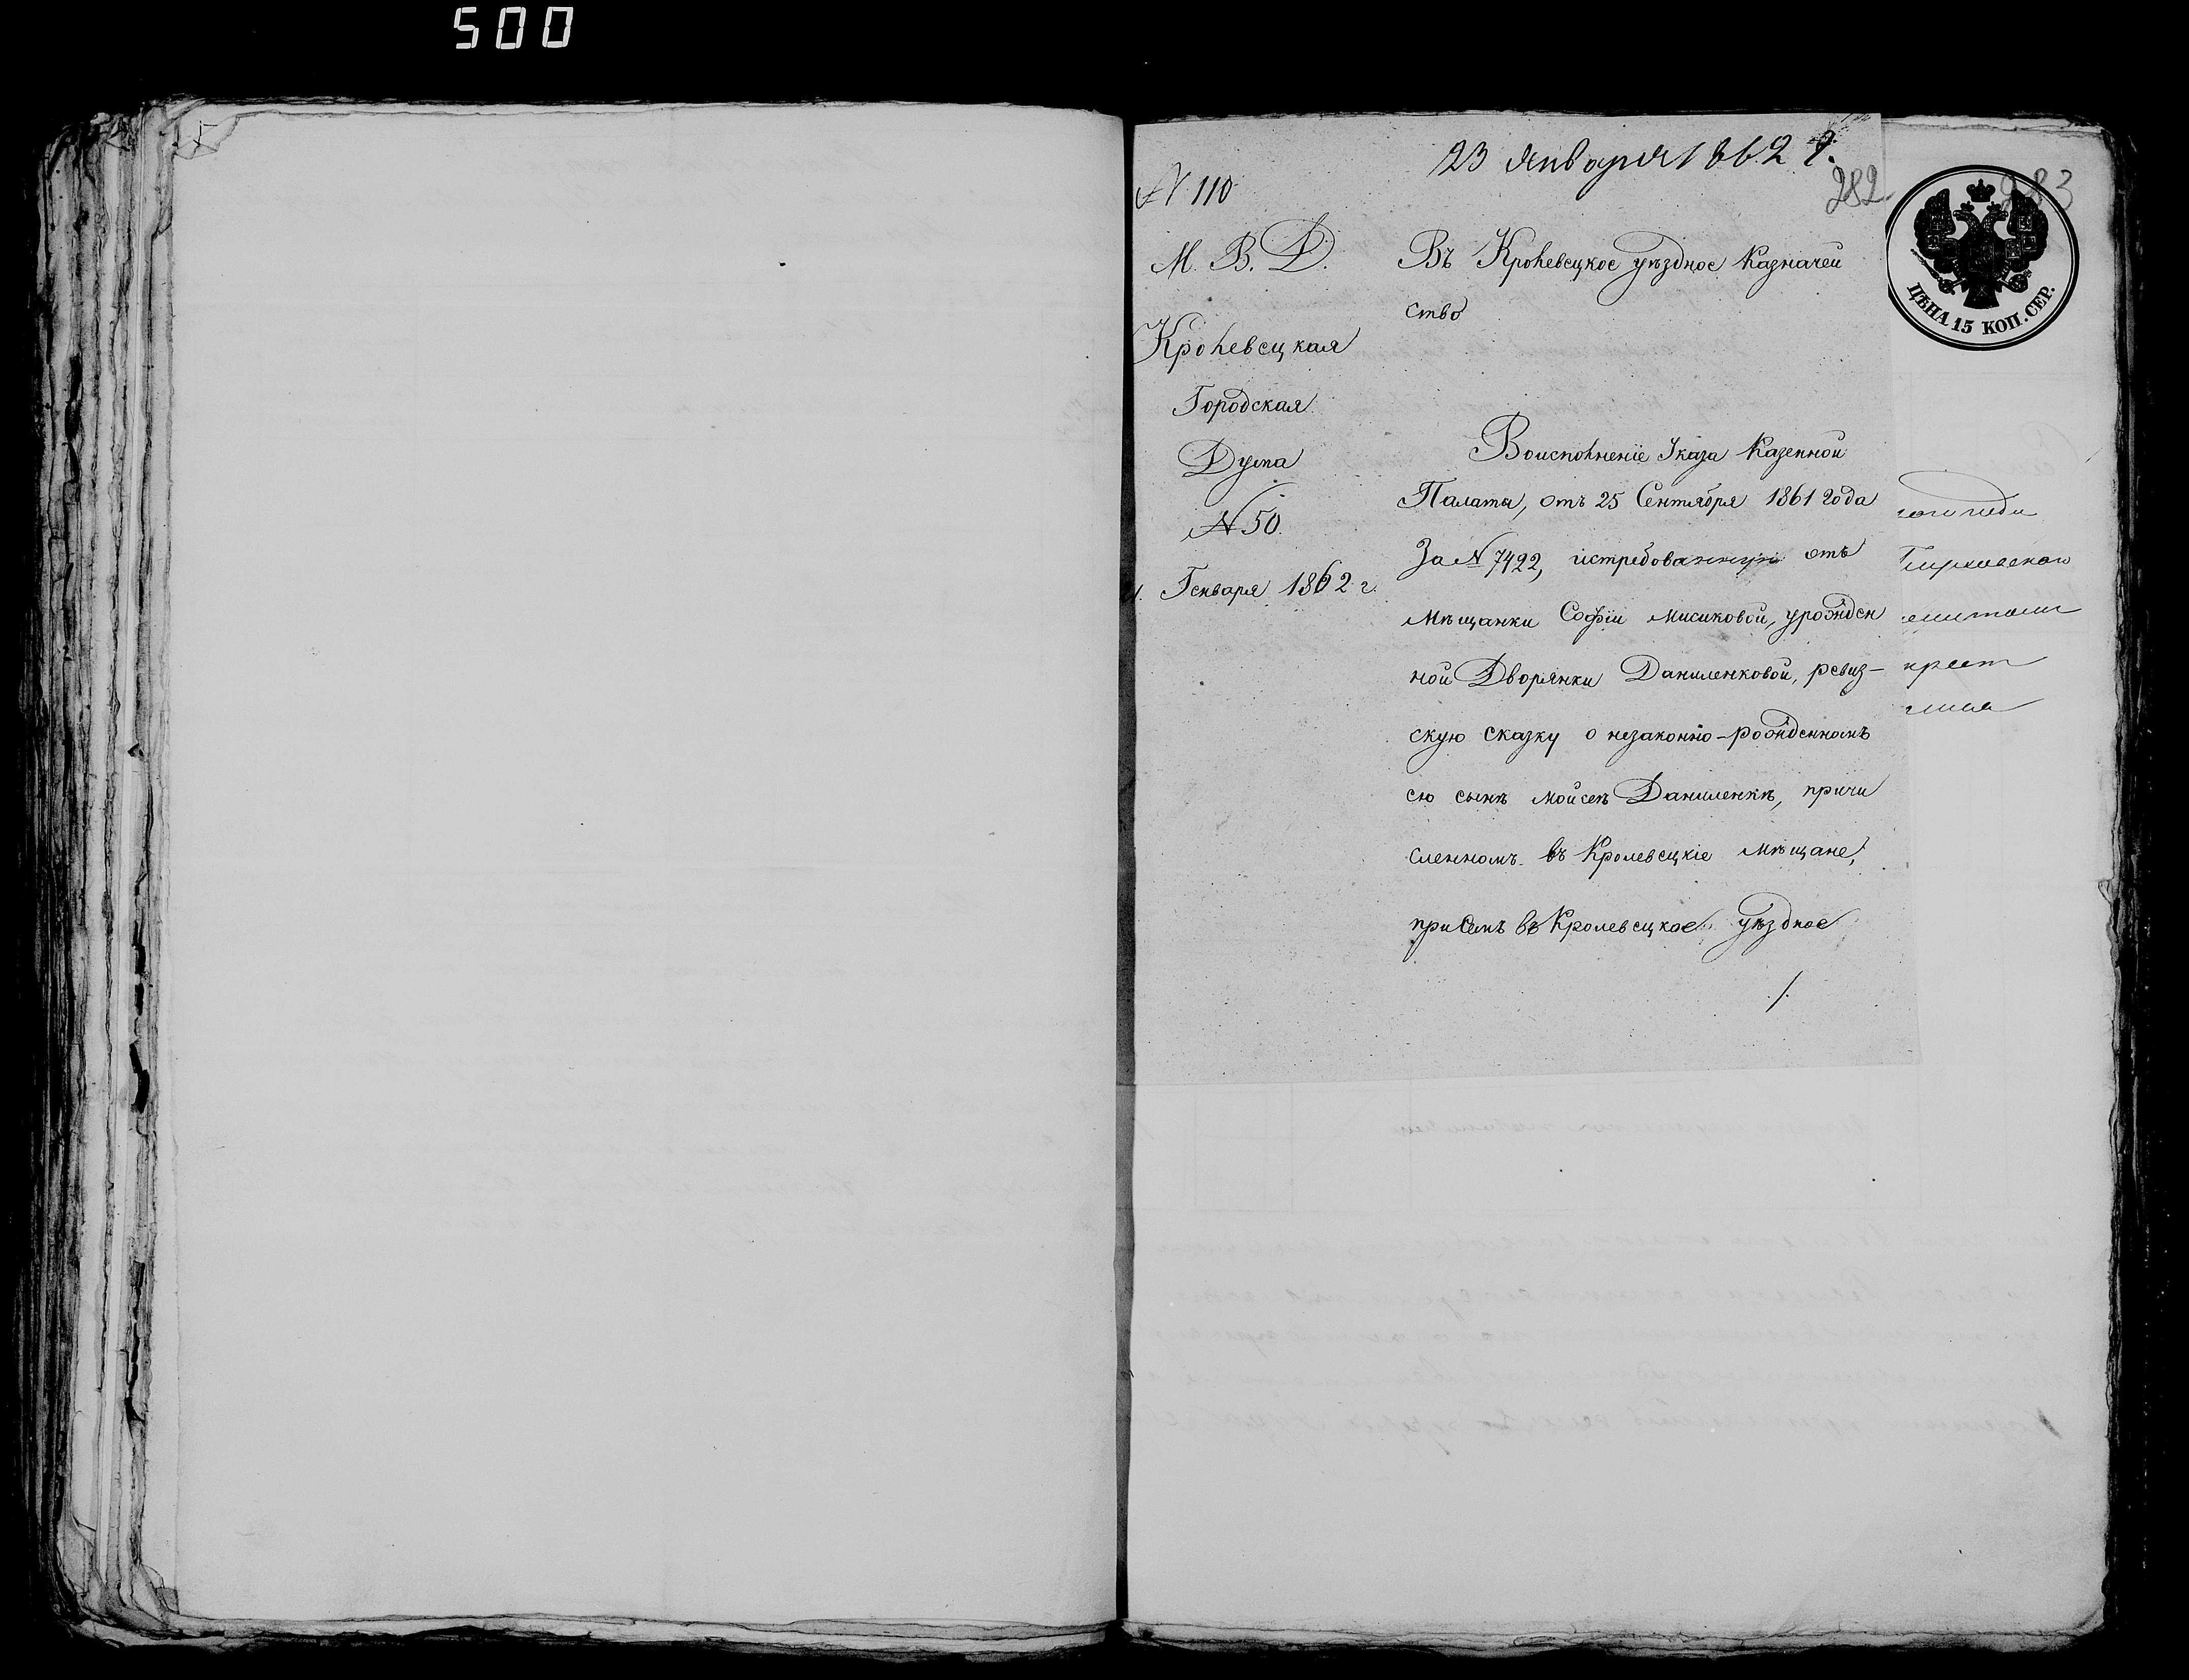 500
23 января 1862 г.
N 110
282
283
М. В. Д.
Кролевецкая
Городская
Дума
N 50.
Генваря 1862 г.
ЦѢНА 15 КОП. СЕР.
Въ Кролевецкое уѣздное Казначей
ство
Воисполненіе Указа Казенной
Палаты, отъ 25 Сентября 1861 года
За N 7492, истребованную отъ
Мѣщанки Софіи Мисиковой, урожден
ной Дворянки Даниленковой, ревиз-
скую сказку о незаконно-рожденномъ
ею сынѣ Мойсеѣ Даниленкѣ, причи
сленномъ въ Кролевецкіе Мѣщане,
при семъ въ Кролевецкое уѣздное
/.